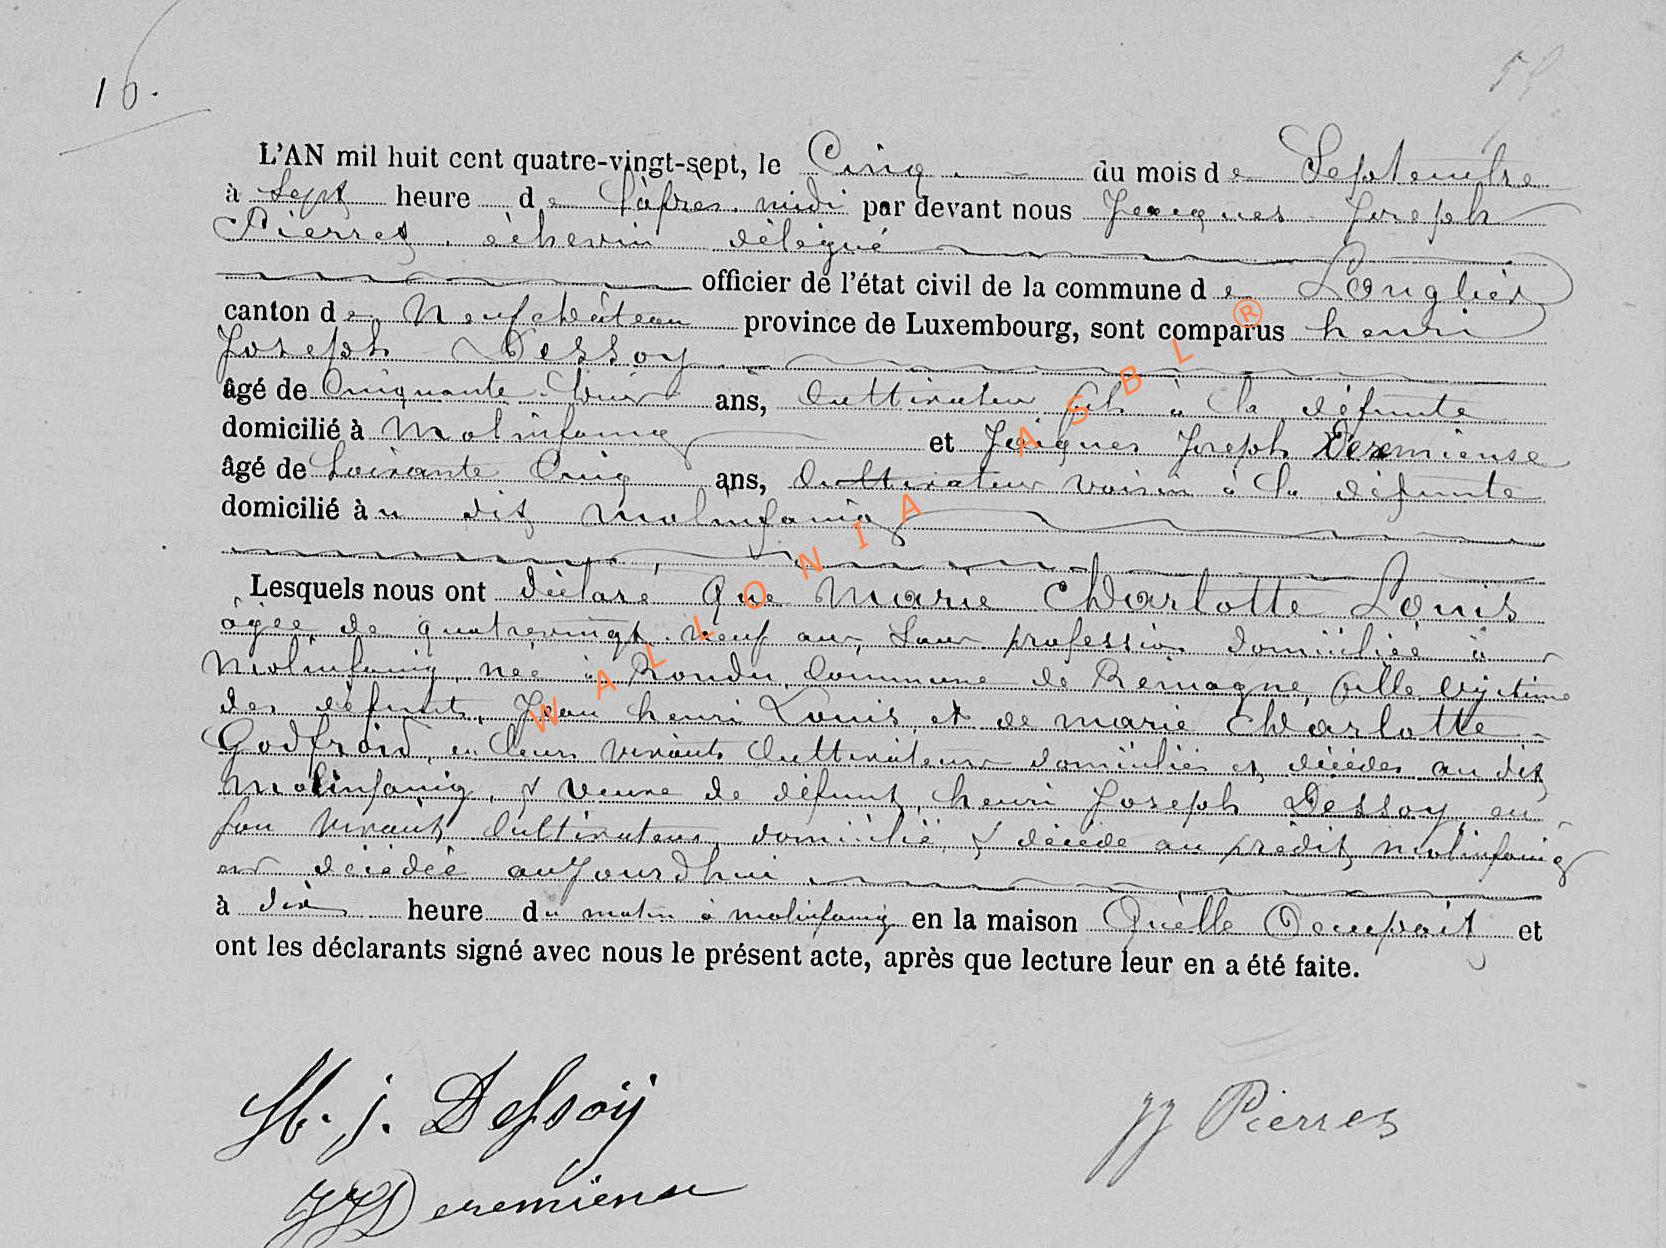 16.
L'AN mil huit cent quatre-vingt-sept, le Cinq du mois de Septembre
à Sept heure de l'après-midi par devant nous Jacques Joseph
Pierres, échevin délégué
officier de l'état civil de la commune de Longlier
canton de Neufchâteau province de Luxembourg, sont comparus henri
Joseph Dessoy
âgé de Cinquante ans, Cultivateur fils à la défunte
domicilié à Molinfaing et Jacques Joseph Deremiense
âgé de Soixante Cinq ans, Cultivateur voisin à la défunte
domicilié à u dit Molinfaing
Lesquels nous ont déclaré que Marie Charlotte Louis
âgée de quatrevingt-neuf ans, Sans profession domiciliée à
Molinfaing, née à Rondu, Commune de Remagne, fille légitime
des défunts, Jean henri Louis, et de marie Charlotte
Godfroid, en leurs vivants Cultivateurs domiciliés et décédés au dit
Molinfaing, & veuve de défunt, henri Joseph Dessoy, en
son vivant, Cultivateur, domicilié, & décédé au prédit, molinfaing
est décédée aujourd'hui
à dix heure du matin à molinfaing en la maison Qu'elle Occupait et
ont les déclarants signé avec nous le présent acte, après que lecture leur en a été faite.
H. j. Dessoÿ
JJ Pierres
JJ Deremiense
WALLONIA ASBL ®